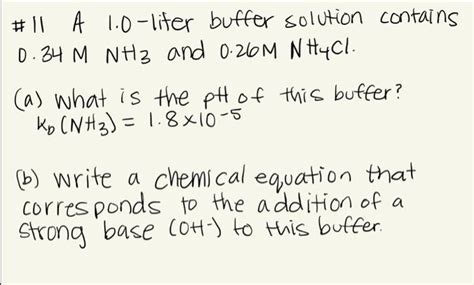 #11 A 1.0-liter buffer solution contains
0.34 M NH3 and 0.26M NH4Cl.
(a) what is the pH of this buffer?
Kb (NH3) = 1.8×10⁻⁵
(b) write a chemical equation that
corresponds to the addition of a
strong base (OH-) to this buffer.